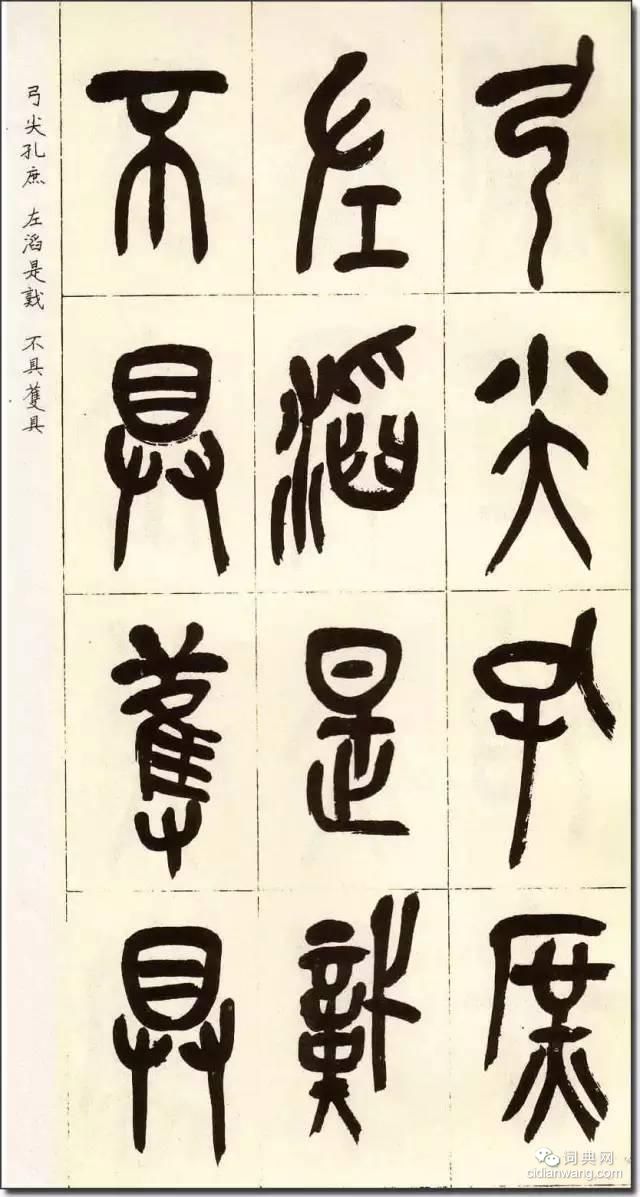 弓尖孔庶
左滔是戭
不具蒦具
弓尖孔庶 左滔是戭 不具蒦具
词典网
cidianwang.com